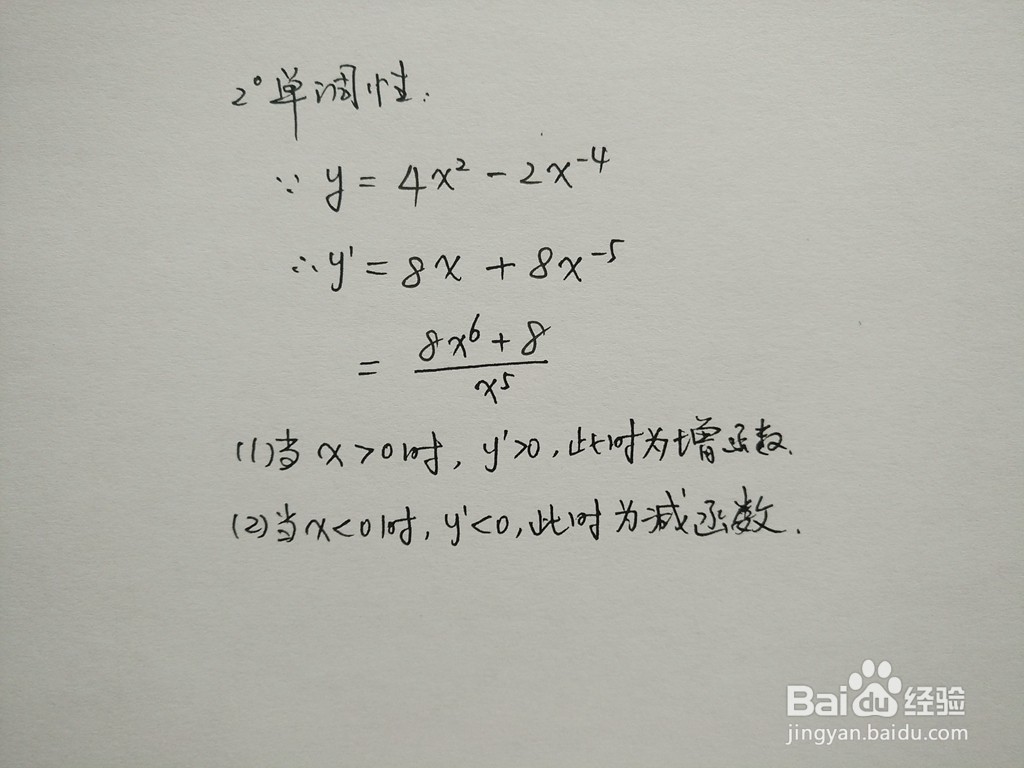 2°单调性:
∵ y = 4x² - 2x⁻⁴
∴ y' = 8x + 8x⁻⁵
= (8x⁶ + 8)/x⁵
(1)当x>0时, y'>0, 此时为增函数.
(2)当x<0时, y'<0, 此时为减函数.
Baidu经验
jingyan.baidu.com